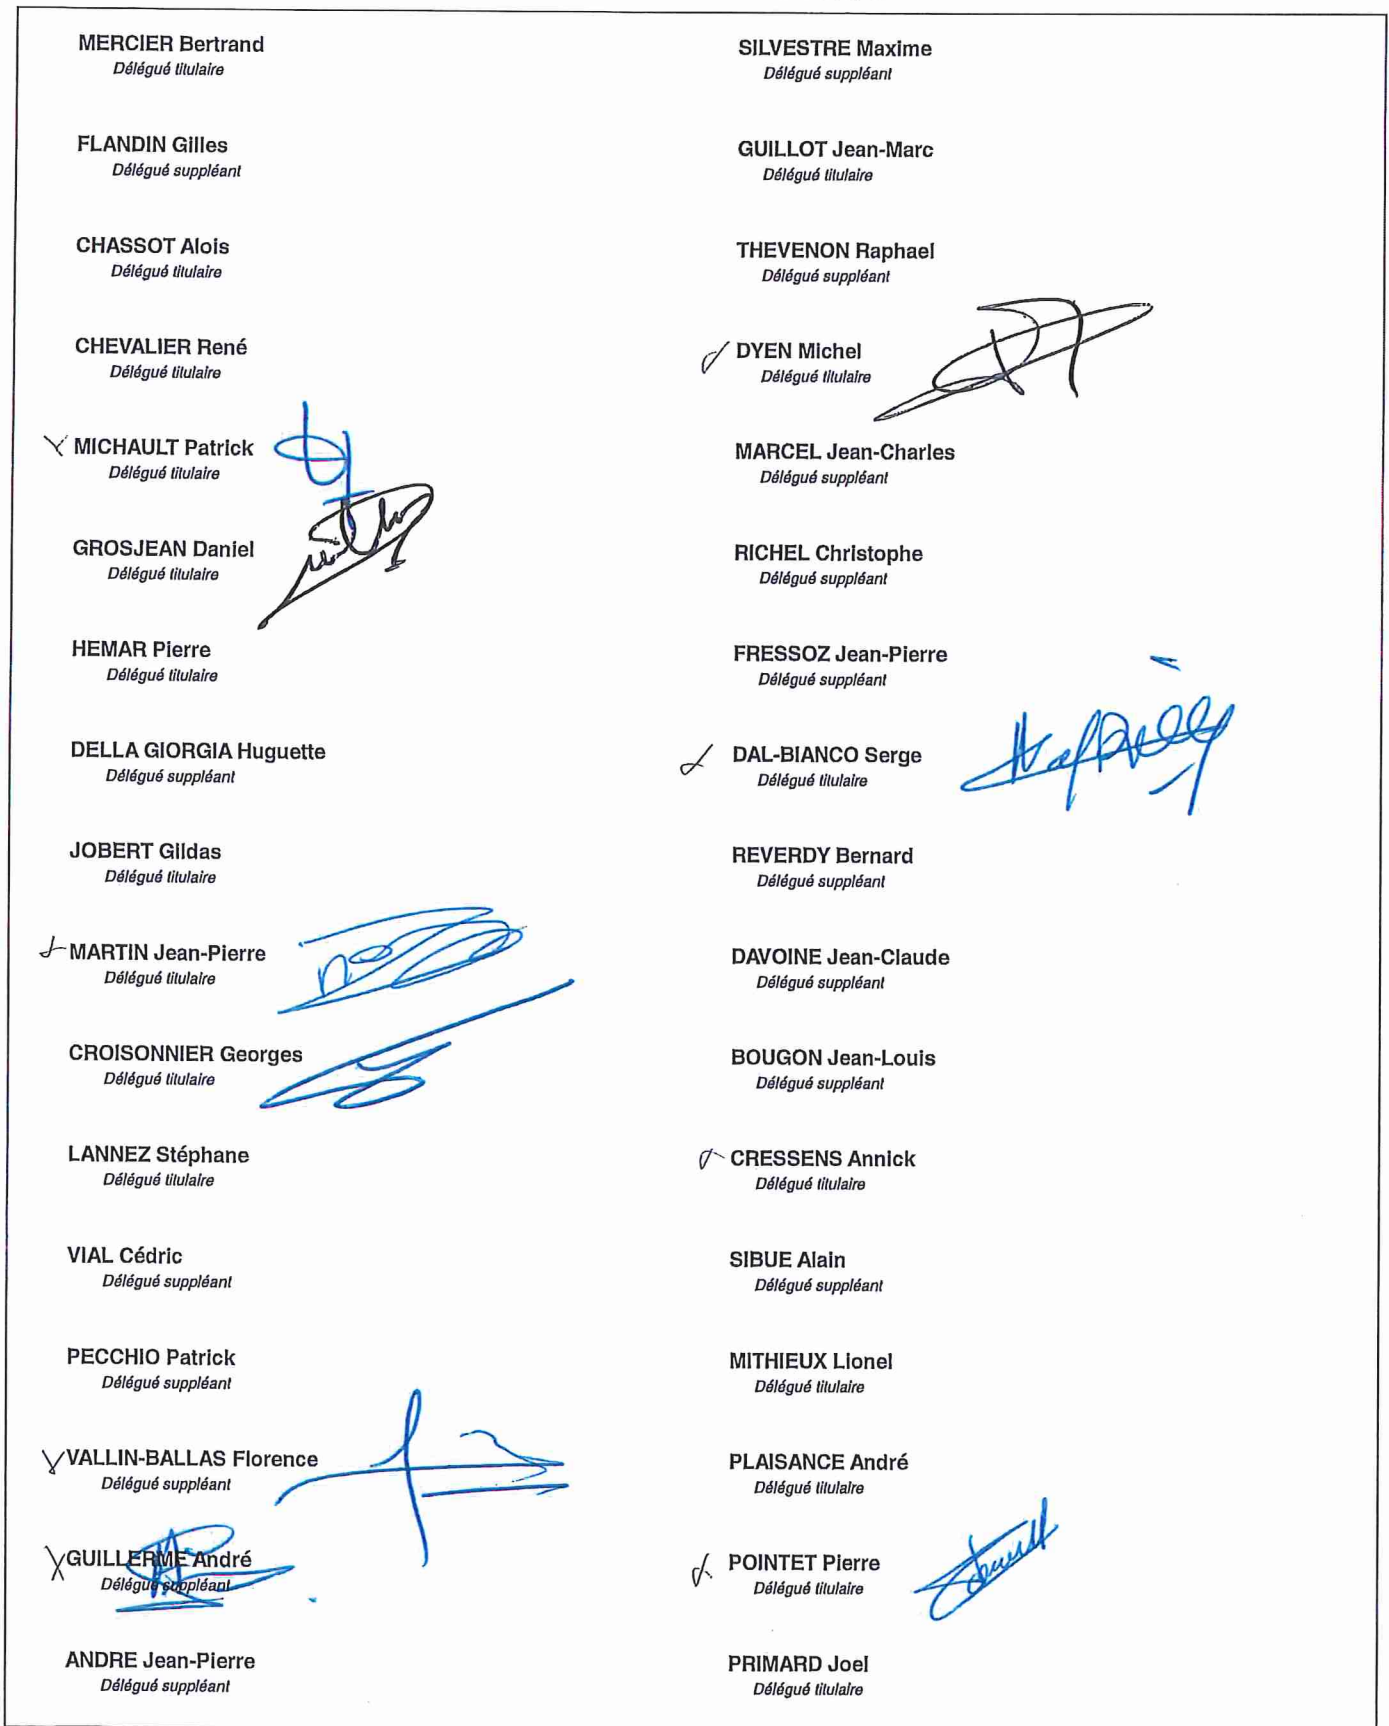 MERCIER Bertrand
Délégué titulaire
FLANDIN Gilles
Délégué suppléant
CHASSOT Alois
Délégué titulaire
CHEVALIER René
Délégué titulaire
MICHAULT Patrick
Délégué titulaire
GROSJEAN Daniel
Délégué titulaire
HEMAR Pierre
Délégué titulaire
DELLA GIORGIA Huguette
Délégué suppléant
JOBERT Gildas
Délégué titulaire
MARTIN Jean-Pierre
Délégué titulaire
CROISONNIER Georges
Délégué titulaire
LANNEZ Stéphane
Délégué titulaire
VIAL Cédric
Délégué suppléant
PECCHIO Patrick
Délégué suppléant
VALLIN-BALLAS Florence
Délégué suppléant
GUILLERME André
Délégué suppléant
ANDRE Jean-Pierre
Délégué suppléant
SILVESTRE Maxime
Délégué suppléant
GUILLOT Jean-Marc
Délégué titulaire
THEVENON Raphael
Délégué suppléant
DYEN Michel
Délégué titulaire
MARCEL Jean-Charles
Délégué suppléant
RICHEL Christophe
Délégué suppléant
FRESSOZ Jean-Pierre
Délégué suppléant
DAL-BIANCO Serge
Délégué titulaire
REVERDY Bernard
Délégué suppléant
DAVOINE Jean-Claude
Délégué suppléant
BOUGON Jean-Louis
Délégué suppléant
CRESSENS Annick
Délégué titulaire
SIBUE Alain
Délégué suppléant
MITHIEUX Lionel
Délégué titulaire
PLAISANCE André
Délégué titulaire
POINTET Pierre
Délégué titulaire
PRIMARD Joel
Délégué titulaire